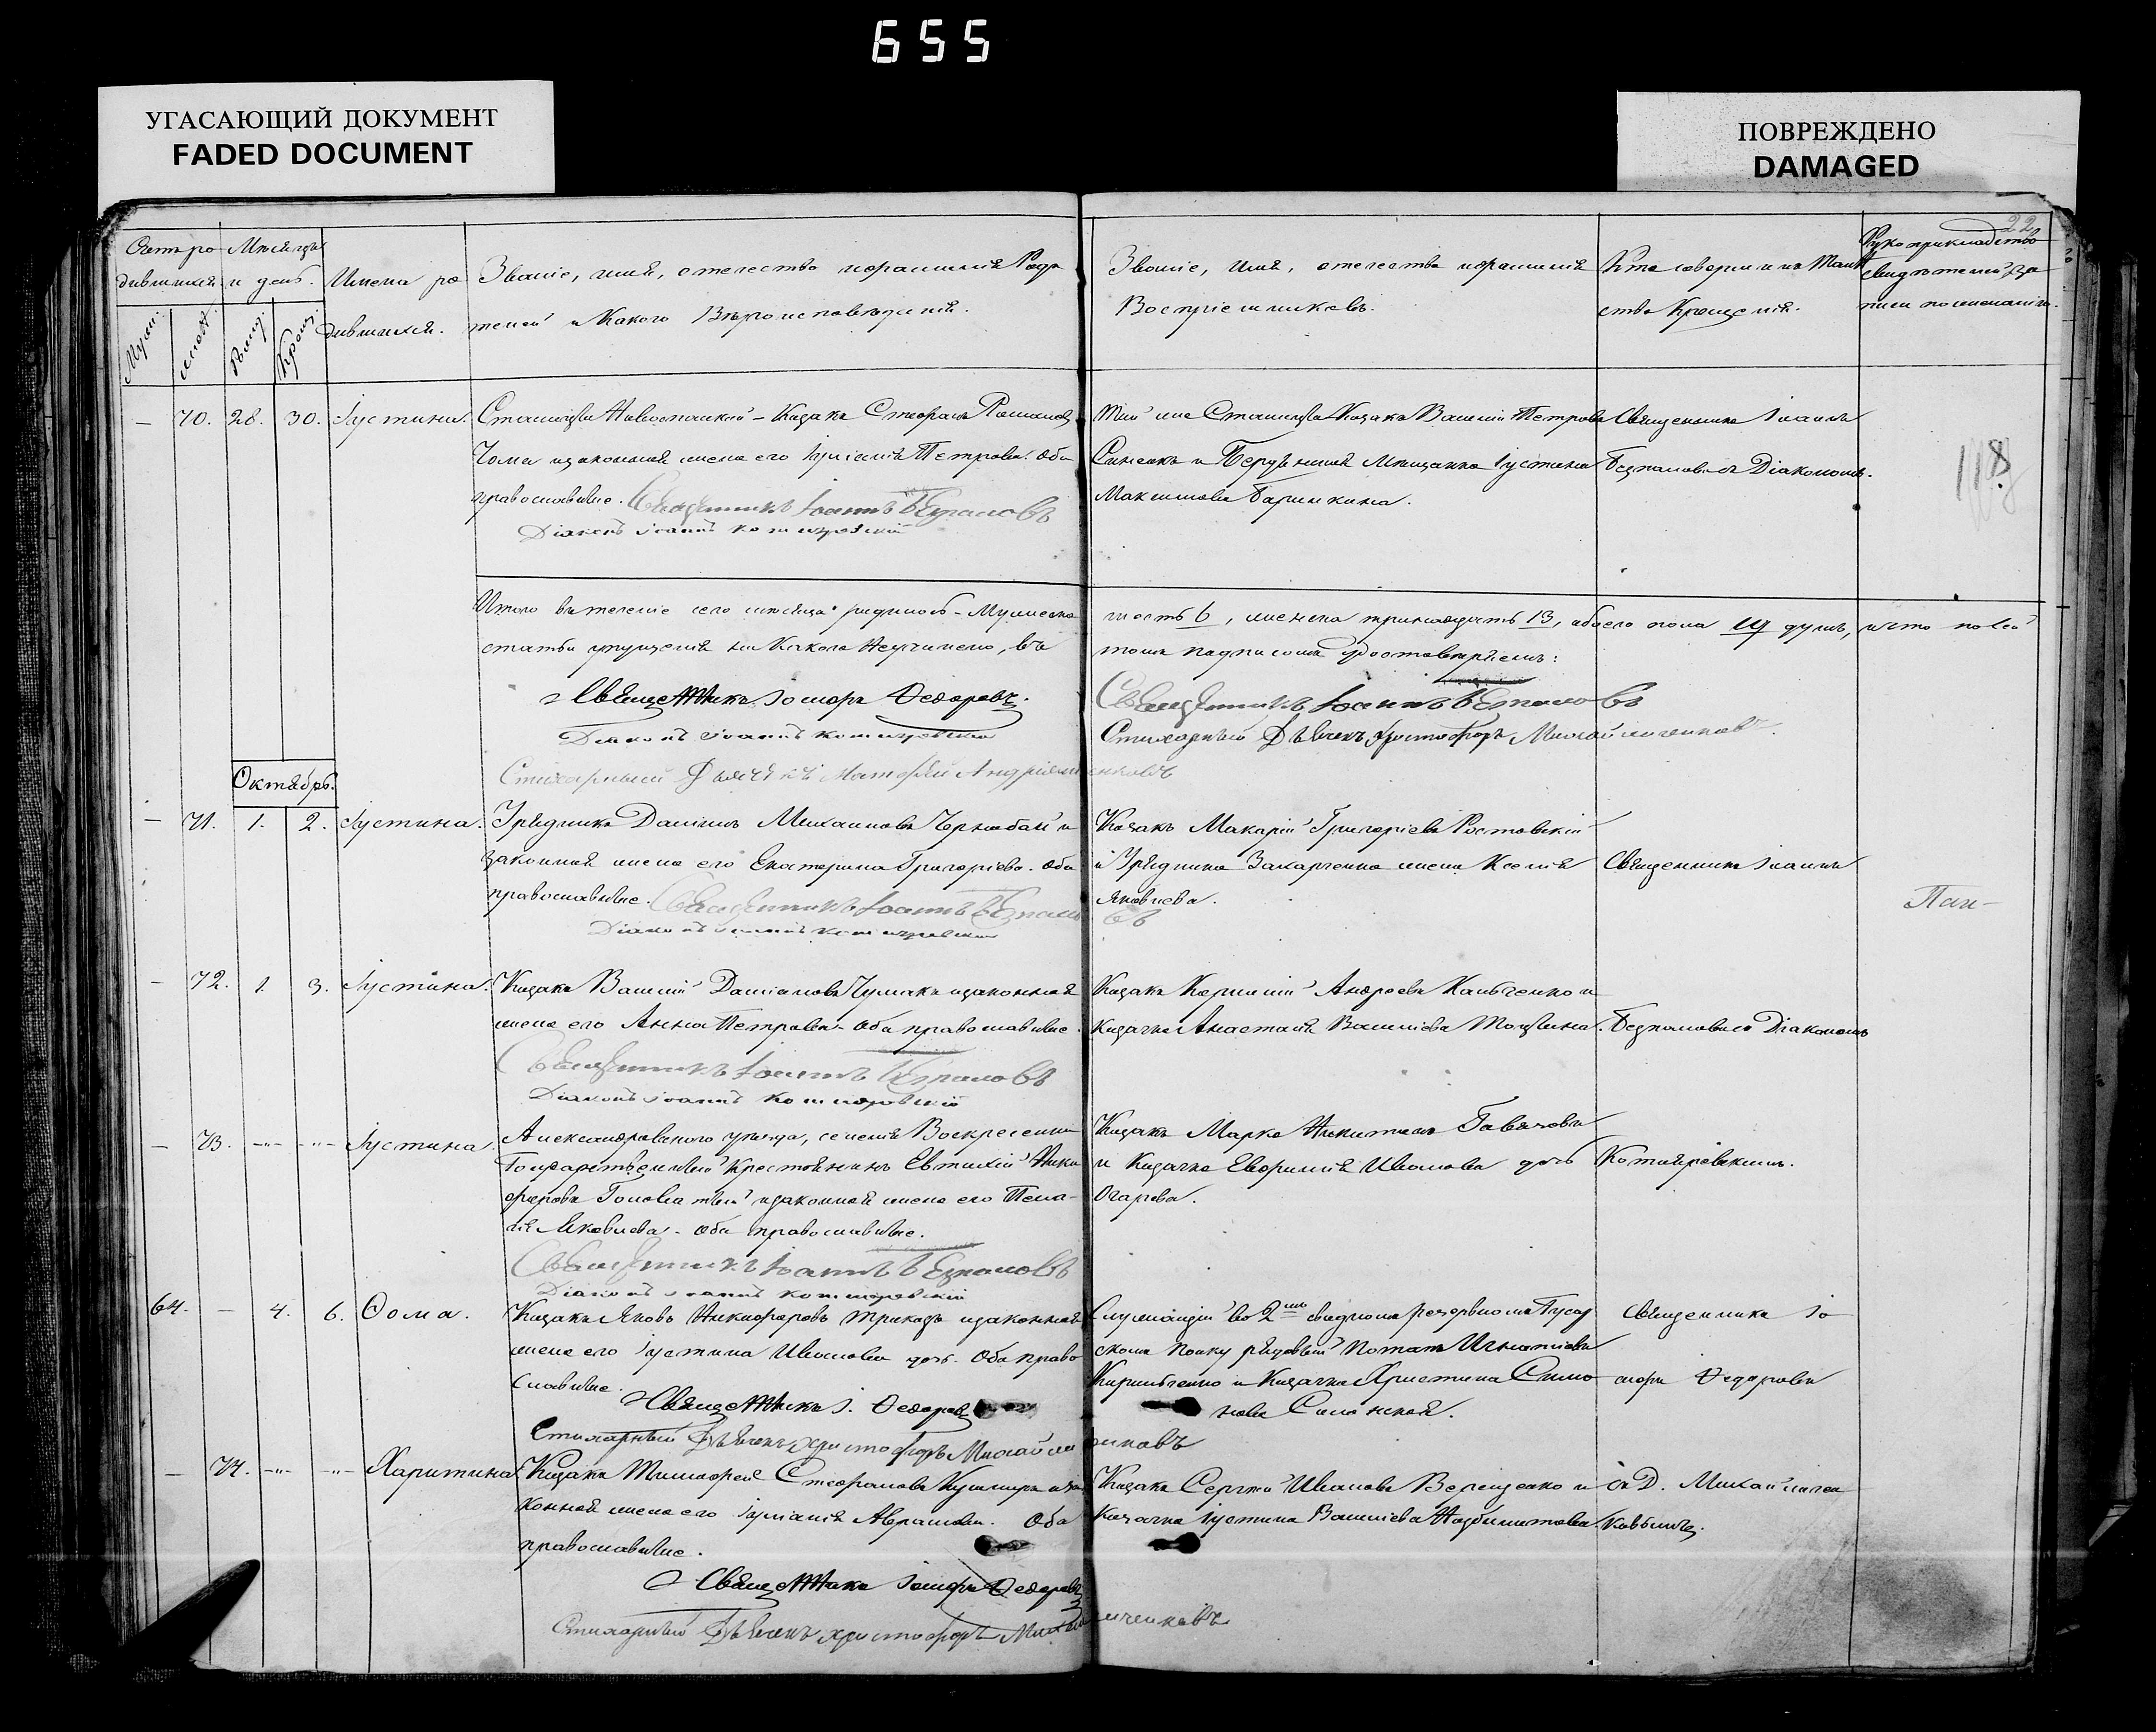 655
УГАСАЮЩИЙ ДОКУМЕНТ
FADED DOCUMENT
ПОВРЕЖДЕНО
DAMAGED
22
Счетъ ро
дившихся
Мѣсяцъ
и день.
Имена ро
дившихся.
Званіе, имя, отечество и фамилія Роди
телей и какого Вѣроисповѣданія.
Званіе, имя, отечество и фамилія
Воспріемниковъ.
Кто совершилъ Таин
ство Крещенія.
Рукоприкладство
свидѣтелей за
писи по желанію.
— 70. 28. 30. Іустина.
Станицы Новоспаской Казакъ Стефанъ Романов
законная жена его Іуліанія Петрова. Оба
православные. Священникъ Іоаннъ Безпаловъ
Діаконъ Іоаннъ Котляревскій
той же Станицы Казакъ Василій Петровъ
Синекъ и Бердянская Мѣщанка Іустина
Максимова
Священникъ Іоаннъ
Безпаловъ съ Діакономъ
118
Итого въ теченіе сего мѣсяца родилось Мужеска
шесть 6, женска тринадцать 13, обоего пола 19 душъ, и что по сей
статьи упущенія ни какого не учинено, въ
томъ подписомъ удостовѣряемъ:
Священникъ Іосифъ Федоровъ.
Священникъ Іоаннъ Безпаловъ
Діаконъ Іоаннъ Котляревскій
Стихарный Дьячекъ Христофоръ Михайличенковъ
Стихарный Дьячекъ Матфей Андріященковъ
Октябрь.
— 71. 1. 2. Іустина.
Урядникъ Даніилъ Михаиловъ Чернобай и
законная жена его Екатерина Григорьева. Оба
православные. Священникъ Іоаннъ Безпаловъ
Діаконъ Іоаннъ Котляревскій
Казакъ Макарій Григорьевъ Ростовскій
и Урядника Захарченка жена Ксенія
Яковлева.
Священникъ Іоаннъ
Пан-
— 72. 1. 3. Іустина.
Казакъ Василій Даміановъ Чумакъ и законная
жена его Анна Петрова. Оба православные.
Священникъ Іоаннъ Безпаловъ
Діаконъ Іоаннъ Котляревскій
Казакъ Корнилій Андреевъ и
Казачка Анастасія Васильева
Безпаловъ съ Діакономъ
— 73. —"— —"— Іустина.
Александровскаго уѣзда, селенія Воскресенки
Государственный Крестьянинъ Евтихій Ники
форовъ Головатый и законная жена его Пела-
гія Яковлева. Оба православные.
Священникъ Іоаннъ Безпаловъ
Діаконъ Іоаннъ Котляревскій
Казакъ Марко Никитинъ
и Казачка Евфимія Иванова дочь
Огарева.
Котляревскимъ.
64. — 4. 6. Ѳома.
Казакъ Яковъ Никифоровъ и законная
жена его Іустина Иванова дочь. Оба право
славные.
Священникъ І. Федоровъ
Стихарный Дьячекъ Христофоръ Михайличенковъ
Служащій во 2мъ сводномъ резервномъ Гусар
скомъ полку рядовый Потапъ Игнатіевъ
Кирильченко и Казачка Христина Симо
нова
Священникъ Іо
сифъ Федоровъ
— 74. —"— —"— Харитина
Казакъ Тимофей Стефановъ Кушниръ и за
конная жена его Іуліанія Аврамова. Оба
православные.
Священникъ Іосифъ Федоровъ
Стихарный Дьячекъ Христофоръ Михайличенковъ
Казакъ Сергій Ивановъ Верещенко и
Казачка Іустина Васильева
съ Д. Михайличен
ковымъ.